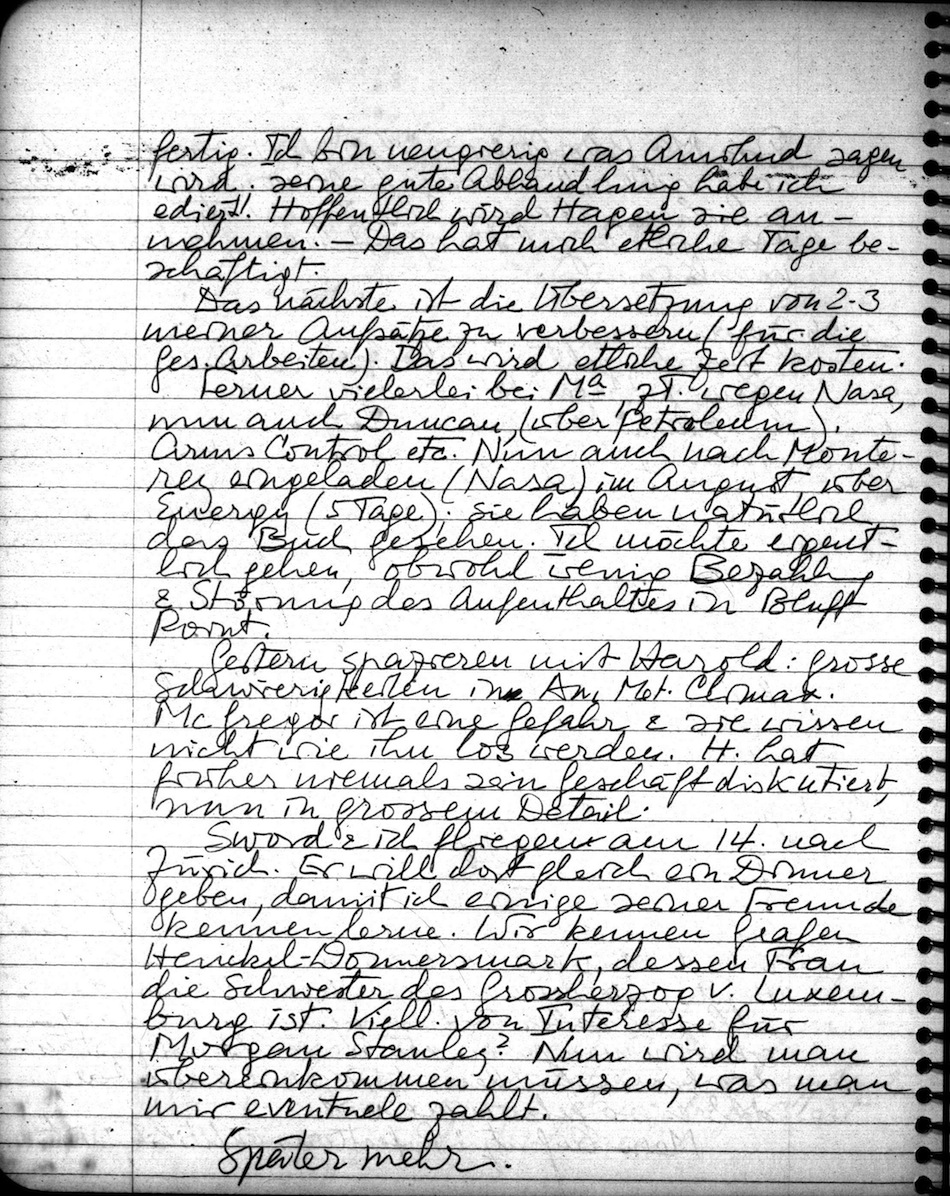 fertig. Ich bin neugierig was Arnold sagen
wird. Seine gute Abhandlung habe ich
ediert. Hoffentlich wird Hagen sie an-
nehmen. – Das hat mich etliche Tage be-
schäftigt.
Das nächste ist die Übersetzung von 2-3
meiner Aufsätze zu verbessern (für die
ges. Arbeiten). Das wird etliche Zeit kosten.
Ferner vielerlei bei Ma, zT. wegen Nasa,
nun auch Duncan, (über Petroleum).
Arms Control etc. Nun auch nach Monte-
rey eingeladen (Nasa) im August über
Energy (5 Tage). Sie haben natürlich
das Buch gesehen. Ich möchte eigent-
lich gehen, obwohl wenig Bezahlung
& Störung des Aufenthaltes in Bluff
Point.
Gestern spazieren mit Harold: grosse
Schwierigkeiten in Am. Met. Climax.
McGregor ist eine Gefahr & sie wissen
nicht wie ihn los werden. H. hat
früher niemals sein Geschäft diskutiert,
nun in grossem Detail.
Sword & ich fliegen am 14. nach
Zürich. Er will dort gleich ein Dinner
geben, damit ich einige seiner Freunde
kennen lerne. Wir kennen Grafen
Henckel-Donnersmark, dessen Frau
die Schwester des Grossherzog v. Luxem-
burg ist. Viell. von Interesse für
Morgan Stanley? Nun wird man
übereinkommen müssen, was man
mir eventuele zahlt.
Später mehr.